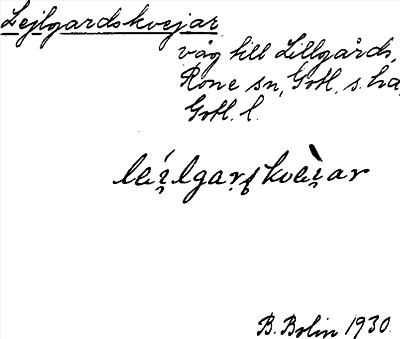 Lejlgardskvejar
väg till Lillgårds,
Rone sn, Gotl. s. hd,
Gotl. l.
léi̯lgarskvèi̯ar
B. Bolin 1930.